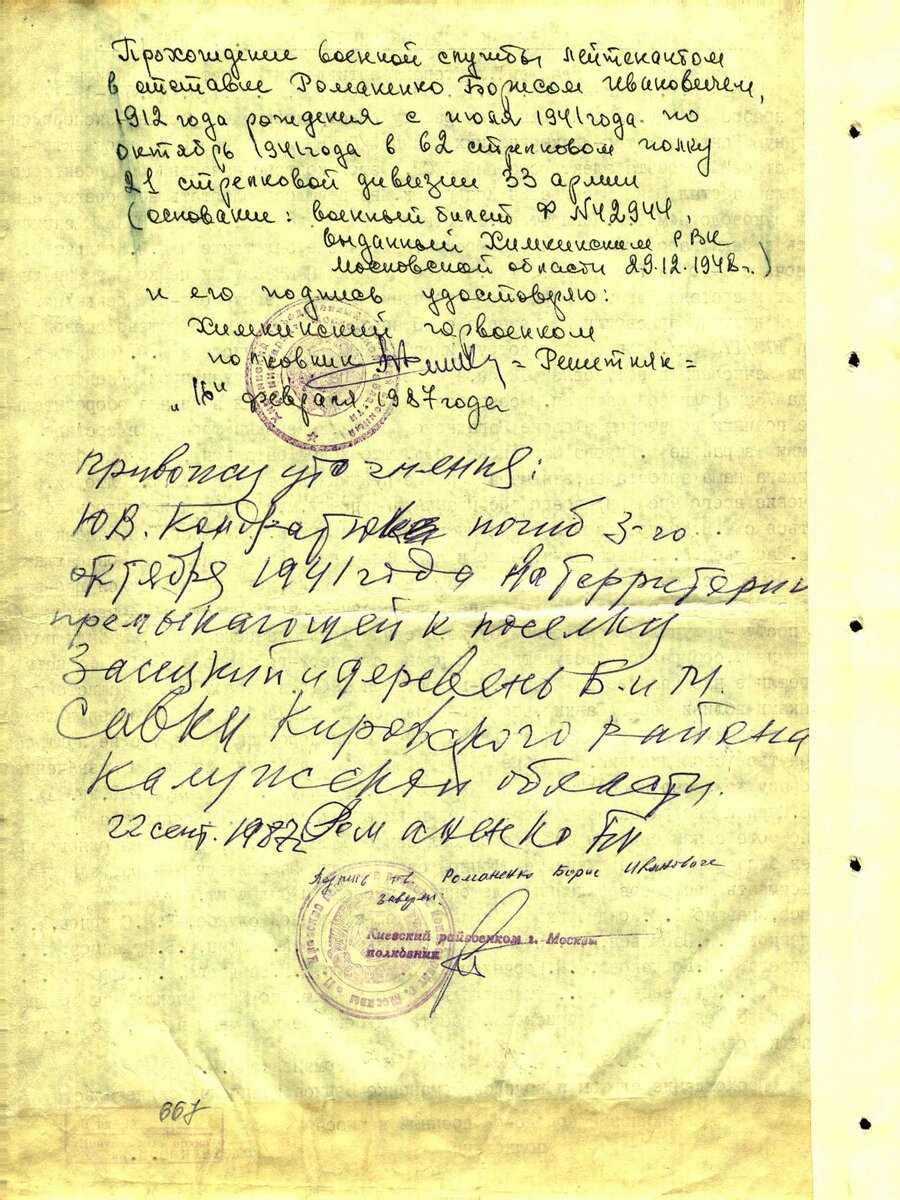 Прохождение военной службы лейтенантом
в отставке Романенко Борисом Ивановичем,
1912 года рождения с июля 1941 года по
октябрь 1941 года в 62 стрелковом полку
21 стрелковой дивизии 33 армии
(основание: военный билет Ф N42944,
выданный Химкинским РВК
Московской области 29.12.1948г.)
и его подпись удостоверяю:
Химкинский горвоенком
полковник = Решетняк =
"16" февраля 1987 года
Привожу уточнения:
Ю.В. Кондратюк погиб 3-го
октября 1941 года на территории
премыкающей к поселку
Засецкий и деревень Б. и М.
Савки Кировского района
Калужской области.
22 сент. 1987г. Романенко БИ
Подпись тов. Романенко Борис Иванович
заверяю
Киевский райвоенком г. Москвы
полковник
667